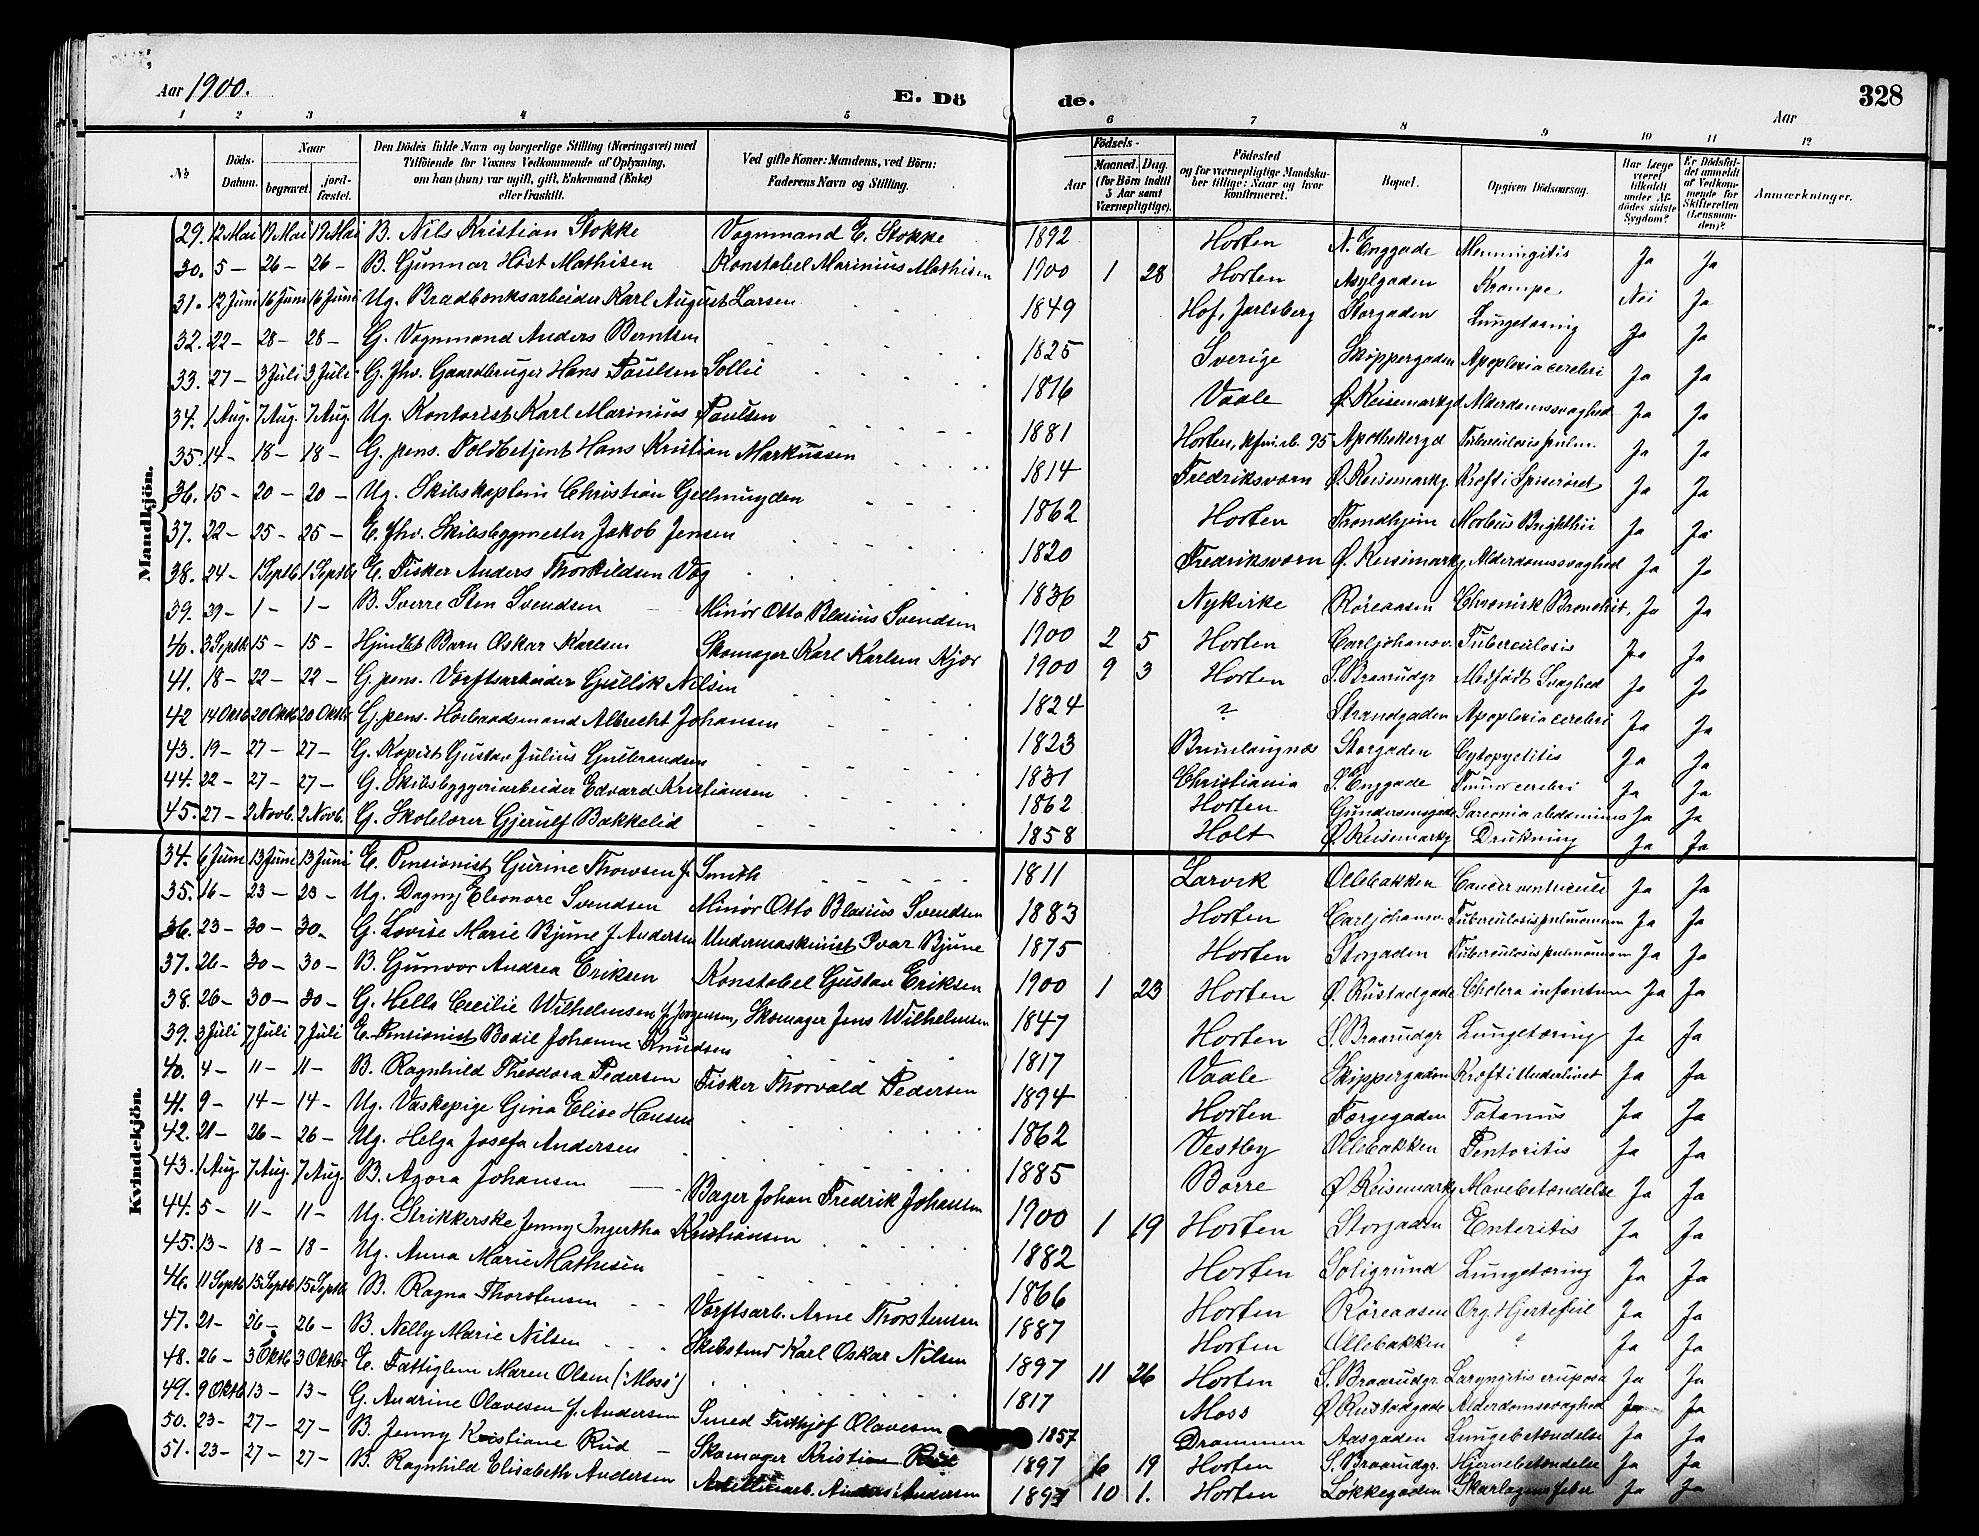 Aar 1900.
E. Dö
de.
Aar
328
1 2 3 4 5 6 7 8 9 10 11 12
No
Döds-Datum.
Naar
begravet.
jord-fæstet.
Den Dödes fulde Navn og borgerlige Stilling (Næringsvei) med
Tilföiende for Voxnes Vedkommende af Oplysning,
om han (hun) var ugift, gift, Enkemand (Enke)
eller fraskilt.
Ved gifte Koner: Mandens, ved Börn:
Faderens Navn og Stilling.
Födsels-
Aar
Maaned. Dag.
(for Börn indtil
5 Aar samt
Værnepligtige).
Födested
og for værnepligtige Mandskaber tillige: Naar og hvor
konfirmeret.
Bopæl.
Opgiven Dödsaarsag.
Har Læge været tilkaldt under Afdödes sidste Sygdom?
Er Dödsfaldet anmeldt af Vedkommende for Skifteretten (Lensmanden)?
Anmærkninger.
Mandkjön.
29. 12 Mai 19 Mai 19 Mai B. Nils Kristian Stokke Vognmand E. Stokke 1892 Horten N. Enggade Menningitis Ja Ja
30. 5 – 26 – 26 – B. Gunnar Höst Mathisen Konstabel Marinius Mathisen 1900 1 28 Horten Asylgaden Krampe Nei Ja
31. 12 Juni 16 Juni 16 Juni Ug. Bradbænksarbeider Karl August Larsen 1849 Hof, Jarlsberg Storgaden Lungetæring Ja Ja
32. 22 – 28 – 28 – G. Vognmand Anders Berntsen 1825 Sverige Skippergaden Apoplexia cerebri Ja Ja
33. 27 – 3 Juli 3 Juli G. fhv. Gaardbruger Hans Paulsen Sollie 1816 Vaale Ø. Keisemarkgd Alderdomssvaghed Ja Ja
34. 1 Aug. 7 Aug. 7 Aug. Ug. Kontorist Karl Marinius Paulsen 1881 Horten, kfm. ib. 95 Apothekergd Tuberculosis pulm. Ja Ja
35. 14 – 18 – 18 – G. pens. Toldbetjent Hans Kristian Markussen 1814 Fredriksværn Ø. Keisemarkg. Kræft i Spiserøret Ja Ja
36. 15 – 20 – 20 – Ug. Skibskaptein Christian Geelmuyden 1862 Horten Trondhjem Morbus Brightii Ja Ja
37. 22 – 25 – 25 – E. fhv. Skibsbygmester Jakob Jensen 1820 Fredriksværn Ø. Keisemarkg. Alderdomssvaghed Ja Ja
38. 24 – 1 Septb. 1 Septb. E. Fisker Anders Thorkildsen Vog 1836 Nykirke Røreaasen Chronisk Bronchit. Ja Ja
39. 29 – 1 – 1 – B. Sverre Sten Svendsen Minör Otto Blasius Svendsen 1900 2 5 Horten Carljohansv. Tuberculosis Ja Ja
40. 3 Septb. 15 – 15 – Hjmdbt Barn Oskar Karlsen Skomager Karl Karlsen Kjær 1900 9 3 Horten S. Braarudgr Medfödt Svaghed Ja Ja
41. 18 – 22 – 22 – G. pens. Værftsarbeider Gullik Nilsen 1824 ? Strandgaden Apoplexia cerebri Ja Ja
42 14 Oktb. 20 Oktb. 20 Oktb. G. pens. Høibaadsmand Albrecht Johansen 1823 Brunlangnæs Storgaden Cystopyelitis Ja Ja
43. 19 – 27 – 27 – G. Kopist Gustav Julius Gulbrandsen 1831 Christiania S. Enggade Tumor cerebri Ja Ja
44. 22 – 27 – 27 – G. Skibsbyggeriarbeider Edvard Kristiansen 1862 Horten Gundersensgade Sarcomia abdominis Ja Ja
45. 27 – 2 Novb. 2 Novb. G. Skolelærer Gjerulf Bakkelid 1858 Holt Ø. Keisemarkg Drukning Ja Ja
Kvindekjön.
34. 6 Juni 13 Juni 13 Juni E. Pensionist Gurine Thowsen f. Smith 1811 Larvik Ollebakken Cancer ventriculi Ja Ja
35. 16 – 23 – 23 – Ug. Dagny Eleonore Svendsen Minör Otto Blasius Svendsen 1883 Horten Carljohansv. Tuberculosis pulmonum Ja Ja
36. 23 – 30 – 30 – G. Lovise Marie Bjune f. Andersen Undermaskinist Ivar Bjune 1875 Horten Storgaden Tuberculosis pulmonum Ja Ja
37. 26 – 30 – 30 – B. Gunvor Andrea Eriksen Konstabel Gustav Eriksen 1900 1 23 Horten Ø. Rustadgade Cholera infantum Ja Ja
38. 26 – 30 – 30 – G. Hella Cecilie Wilhelmsen f. Jørgensen, Skomager Jens Wilhelmsen 1847 Horten S. Braarudgr Lungetæring Ja Ja
39. 3 Juli 7 Juli 7 Juli E. Pensionist Bodil Johanne Knudsen 1817 Vaale Skippergaden Kræft i Underlivet Ja Ja
40. 4 – 11 – 11 – B. Ragnhild Theodora Pedersen Fisker Thorvald Pedersen 1894 Horten Torgegaden Tatanus Ja Ja
41. 9 – 14 – 14 – Ug. Vaskepige Gina Elise Hansen 1862 Vestby Ollebakken Pentoritis Ja Ja
42. 21 – 26 – 26 – Ug. Helga Josefa Andersen 1885 Borre Ø. Keisemarkg Mavebetændelse Ja Ja
43. 1 Aug. 7 Aug. 7 Aug. B. Agora Johansen Bager Johan Fredrik Johansen 1900 1 19 Horten Storgaden Enteritis Ja Ja
44. 5 – 11 – 11 – Ug. Strikkerske Jenny Ingertha Kristiansen 1882 Horten Soligrund Lungetæring Ja Ja
45. 13 – 18 – 18 – Ug. Anna Marie Mathisen 1866 Horten Røreaasen Org. Hjertefeil Ja Ja
46. 11 Septb. 15 Septb. 15 Septb. B. Ragna Thorstensen Værftsarb. Arne Thorstensen 1887 Horten Ollebakken ? Ja Ja
47. 21 – 26 – 26 – B. Nelly Marie Nilsen Skibstmd Karl Oskar Nilsen 1897 11 26 Horten S. Braarudgr. Laryngitis cruposa Ja Ja
48. 26 – 3 Oktb. 3 Oktb. E. Fattiglem Maren Olsen ("Moss") 1817 Moss Ø. Rustadgade Alderdomssvaghed Ja Ja
49. 9 Oktb. 13 – 13 – G. Andrine Olavesen f. Andersen Smed Fridthjof Olavesen 1857 Drammen Aasgaden Lungebetændelse Ja Ja
50. 23 – 27 – 27 – B. Jenny Kristiane Rud – Skomager Kristian Rud 1897 6 19 Horten S. Braarudgr. Hjernebetændelse Ja Ja
51. 23 – 27 – 27 – B. Ragnhild Elisabeth Andersen Artilleriarb. Anders Andersen 1897 10 1. Horten Løkkegaden Skarlagensfeber Ja Ja